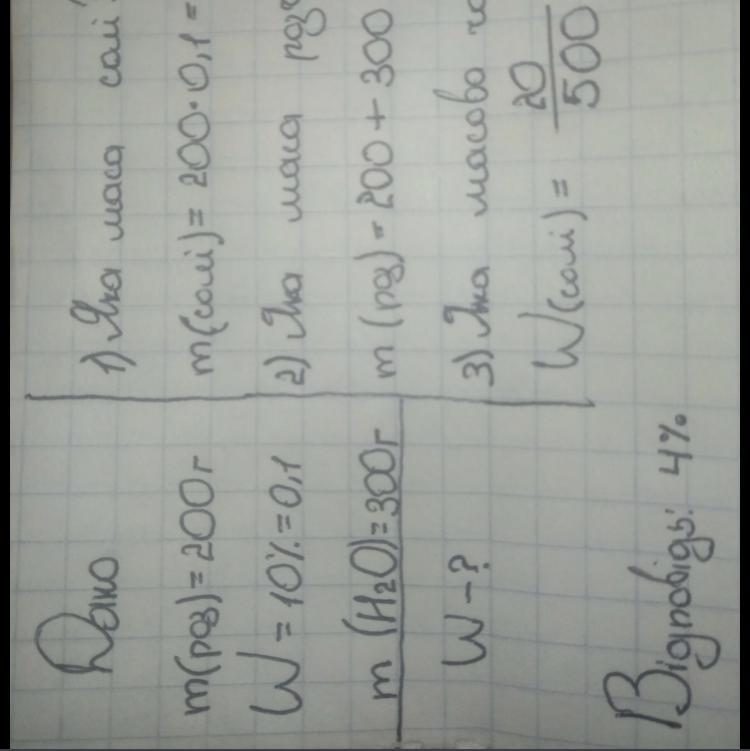 Дано
m(роз)=200г
W=10%=0,1
m(H₂O)=300г
W-?
1) Яка маса солі
m(солі)=200•0,1=
2) Яка маса
m(роз)=200+300
3) Яка масова
W(солі)= 20/500
Відповідь: 4%